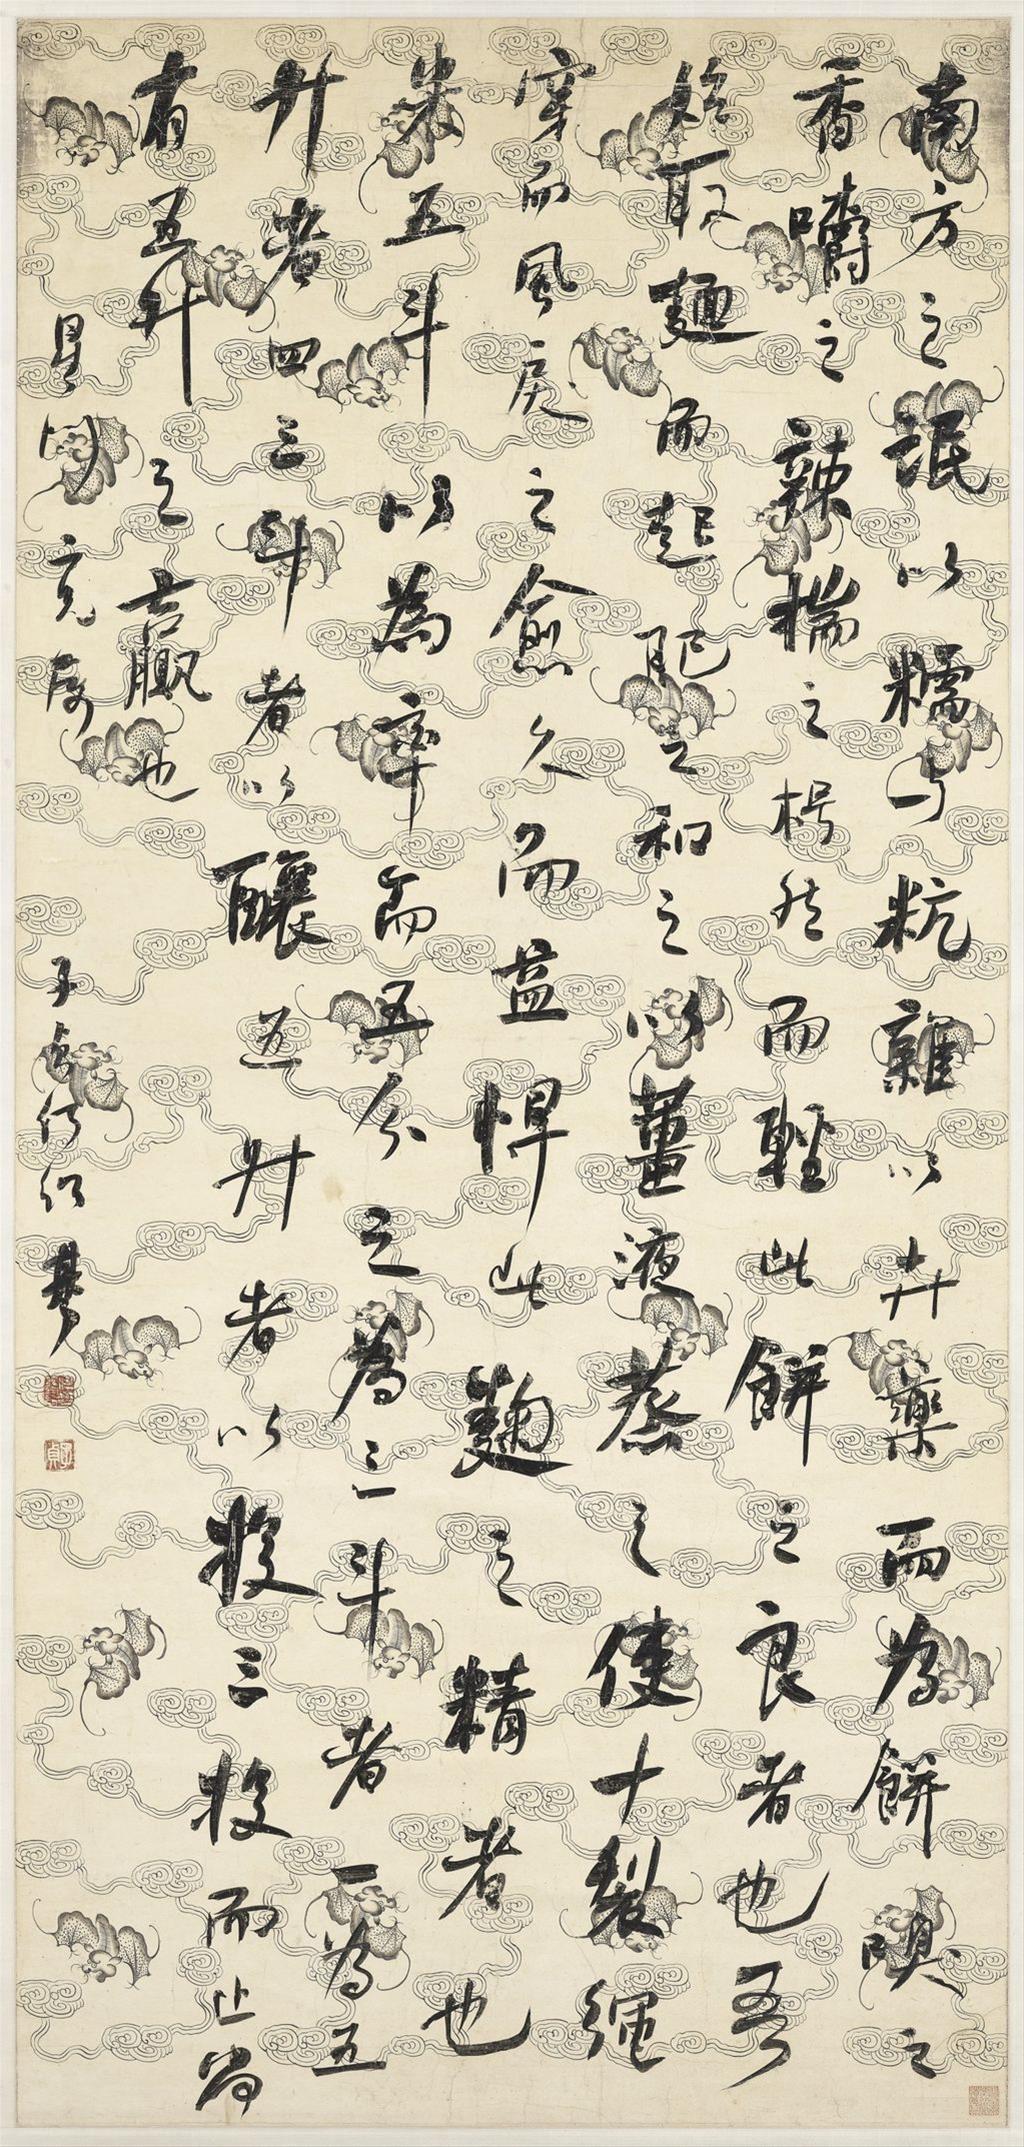 南方之氓以糯与粇雜以卉藥而為餅嗅之
香嚼之辣揣之枵然而輕此餅之良者也吾
始取麵而起肥之和之以薑液蒸之使十裂繩
穿而風戾之愈久而益悍此麴之精者也
米五斗以為率而五分之為三斗者一為五
升者四三斗者以釀五升者以投三投而止尚
有五斗之贏也
星 子貞何紹基